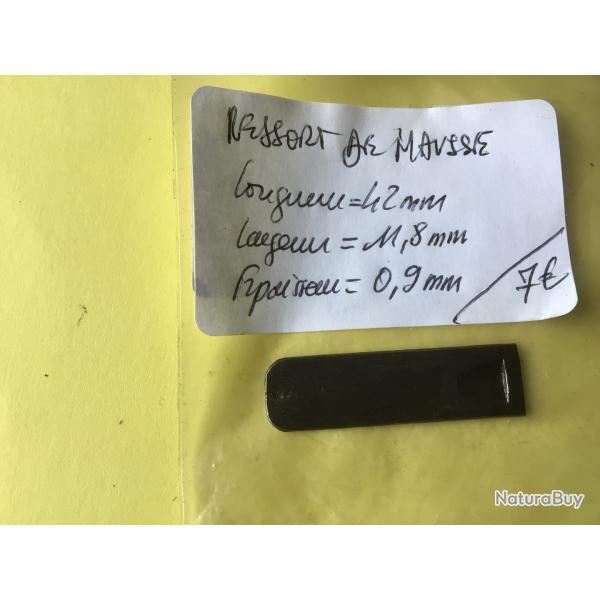 RESSORT DE MAUSSIE
Longueur = 42 mm
Largeur = 11,8 mm
Epaisseur = 0,9 mm
7€
NaturaBuy